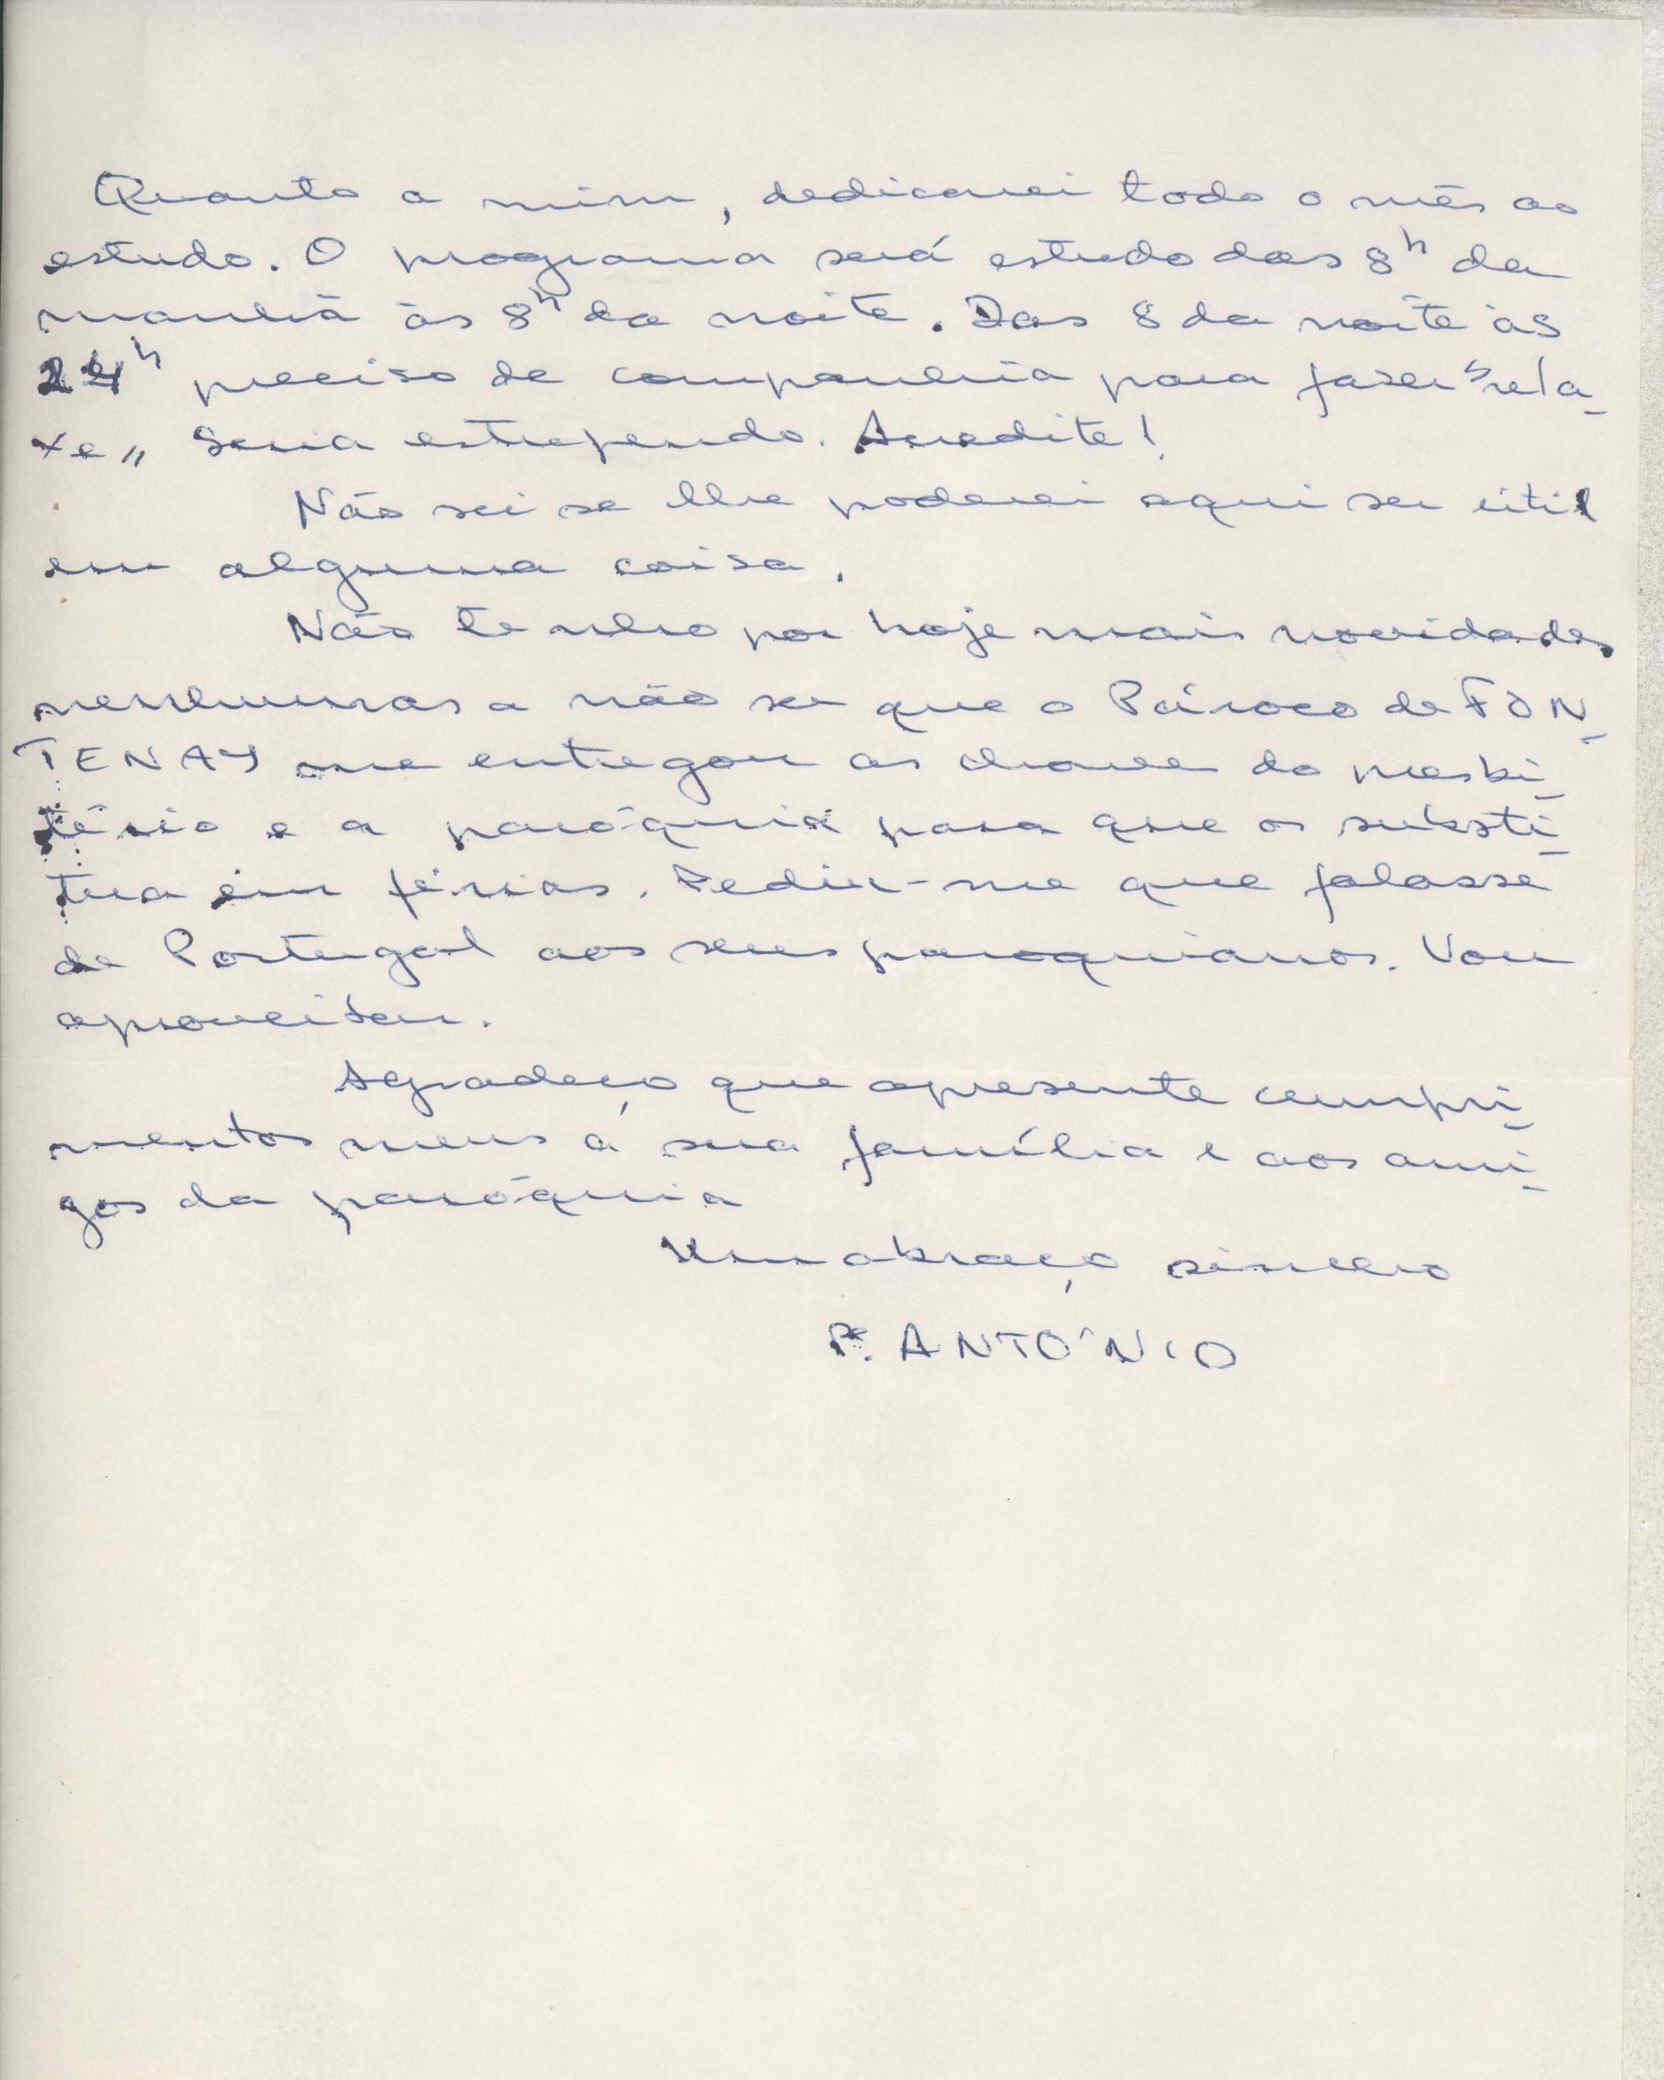 Quanto a mim, dedicarei todo o mês ao
estudo. O programa será estudo das 8h da
manhã às 8h da noite. Das 8 da noite às
24h preciso de companhia para fazer "rela-
xe" Seria estupendo. Acredite!
Não sei se lhe poderei aqui ser útil
em alguma coisa.
Não tenho por hoje mais novidades
nenhumas a não ser que o Pároco de FON-
TENAY me entregou as chaves do presbi-
tério e a paróquia para que os substi-
tua em férias. Pediu-me que falasse
de Portugal aos seus paroquianos. Vou
aproveitar.
Agradeço que apresente cumpri-
mentos meus à sua família e aos ami-
gos da paróquia
Um abraço sincero
Pe. ANTÓNIO